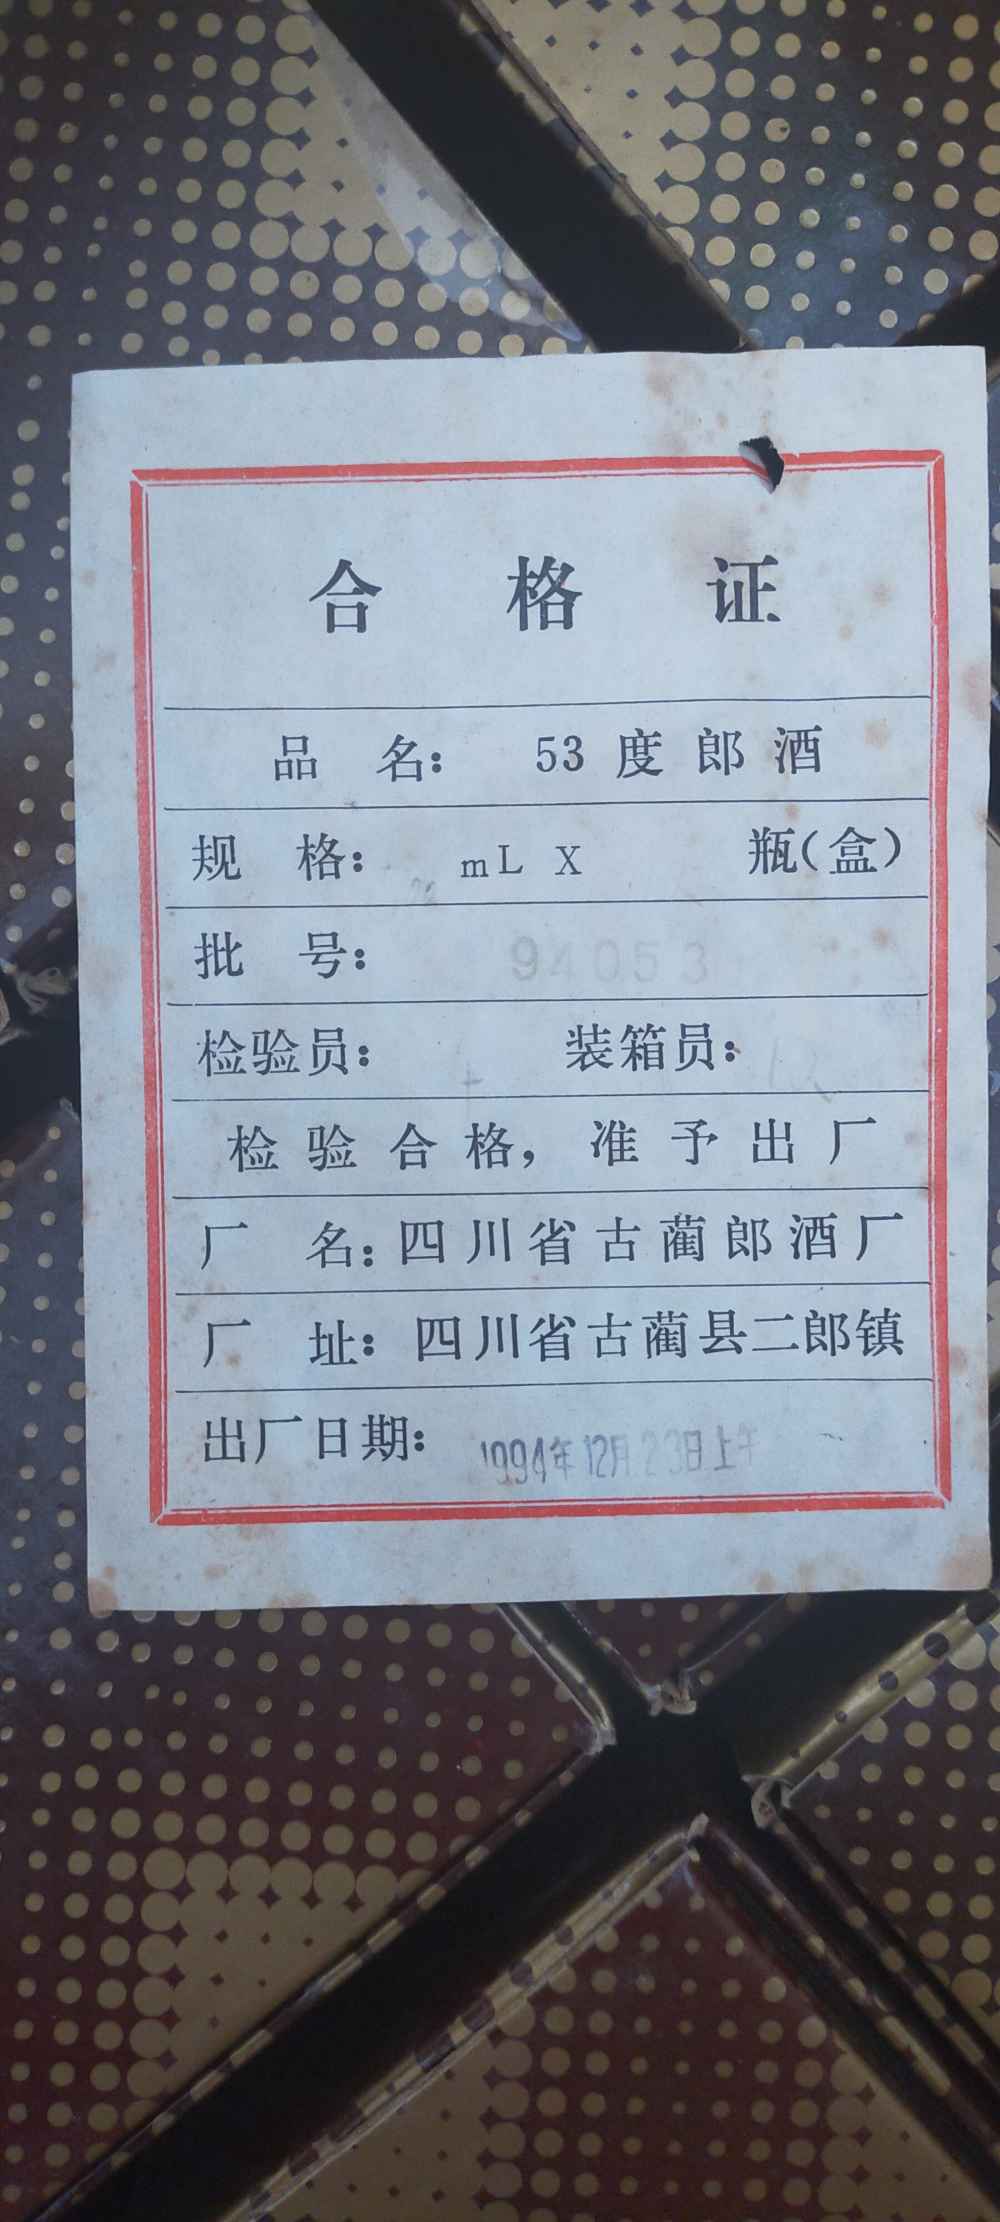 合格证
品名：53度郎酒
规格：mL X 瓶(盒)
批号：94053
检验员： 装箱员：
检验合格，准予出厂
厂名：四川省古蔺郎酒厂
厂址：四川省古蔺县二郎镇
出厂日期：1994年12月23日上午